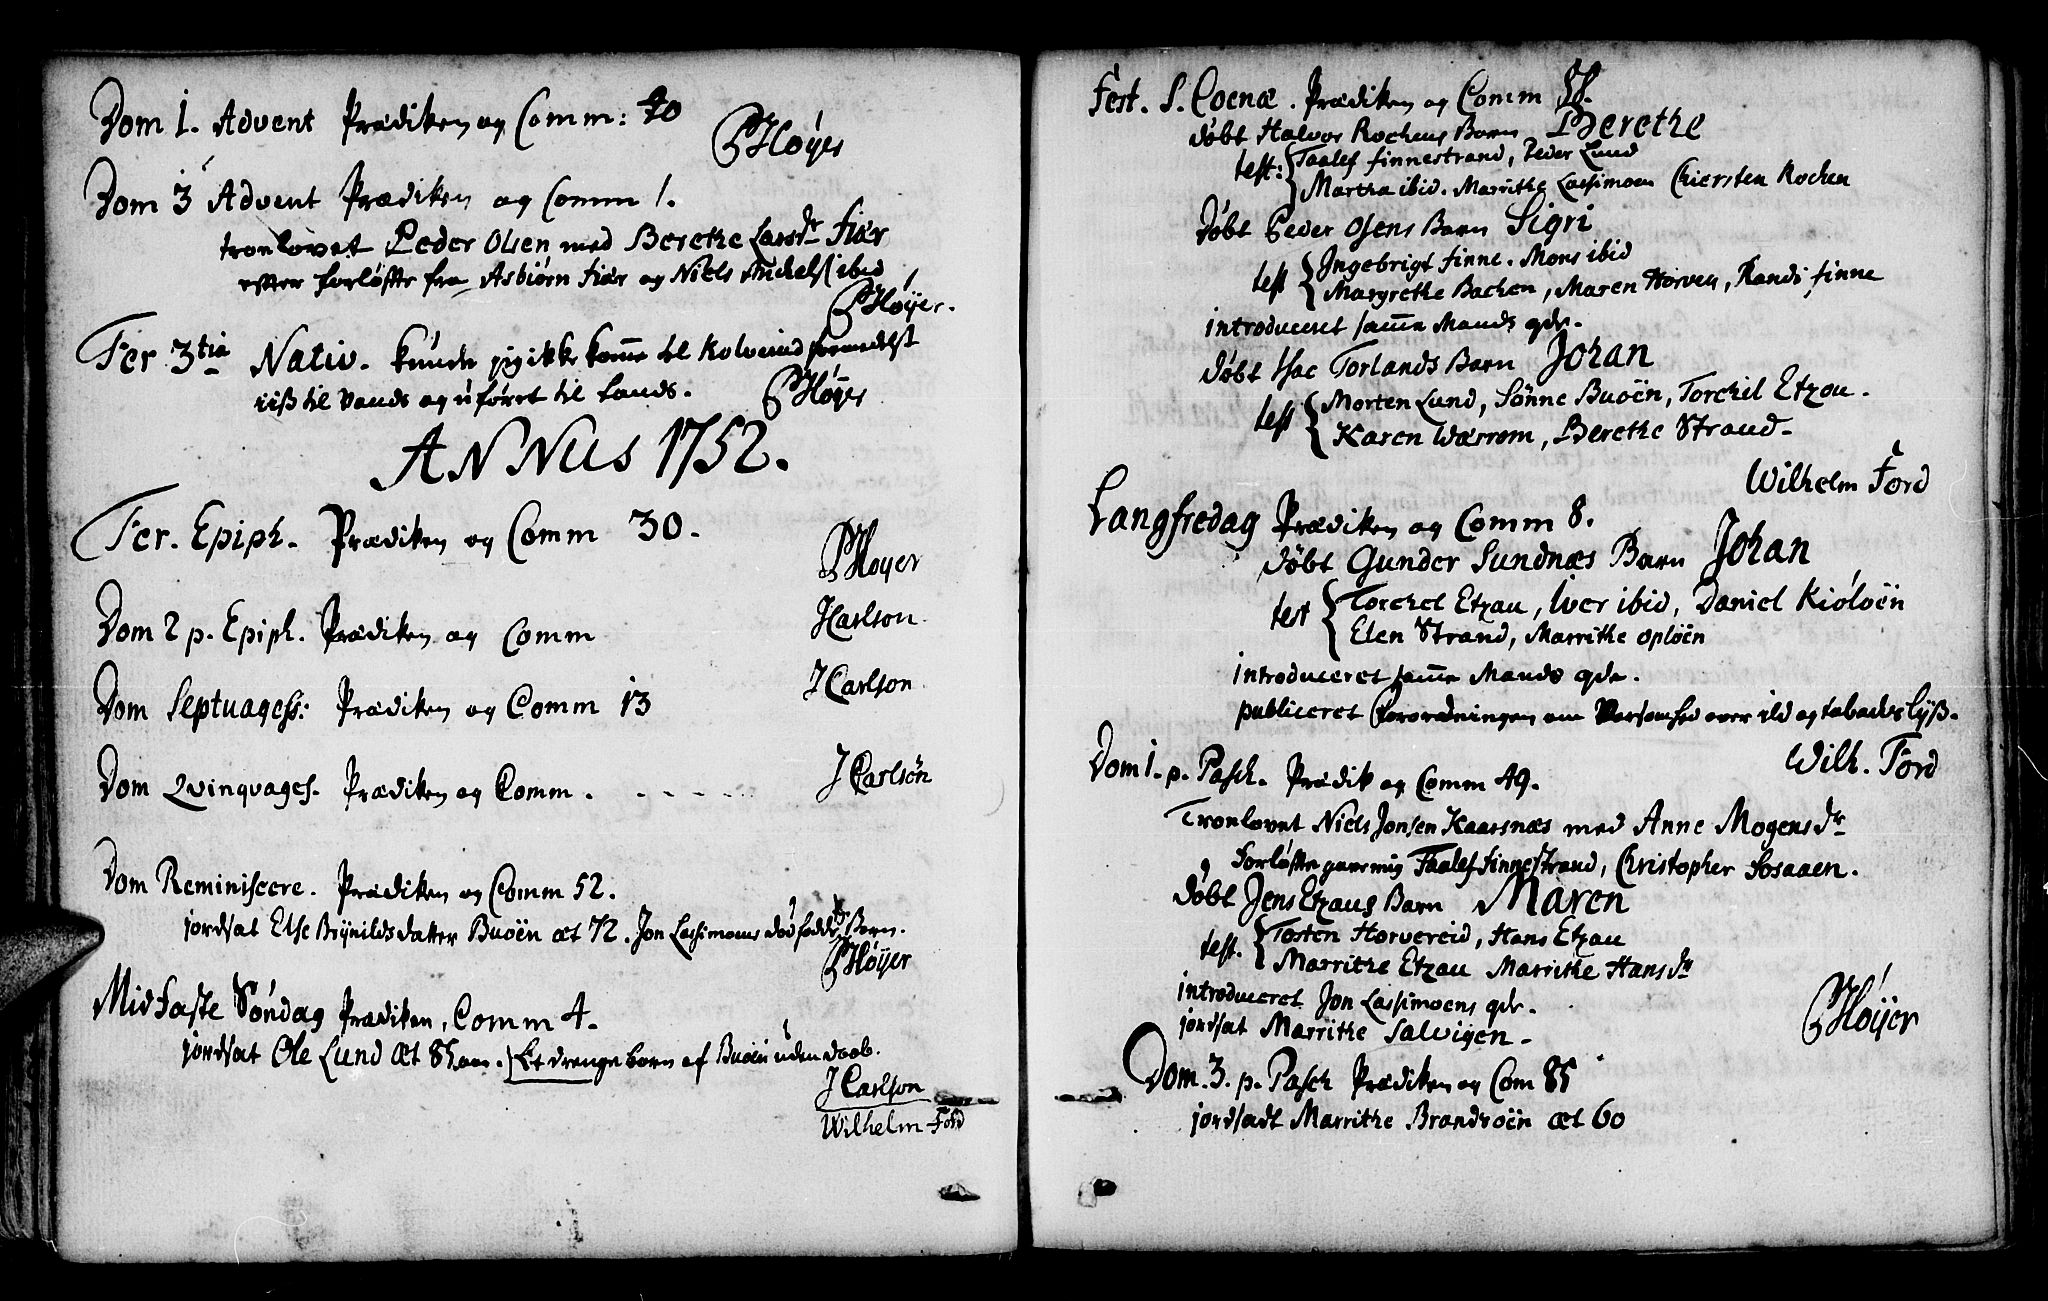 Dom 1. Advent Prædiken og Comm: 40
PHøyer
Dom 3 Advent Prædiken og Comm 1.
troelovet Peder Olsen med Berethe Larsdr Fiær
efter forløfte fra Asbiörn Fiær og Niels Michels. ibid
PHøÿer.
Fer 3tia Nativ. kunde jeg ikke komme til Kolverеid formedelst
iiß til Vands og uføret til Lands.
PHøyer
ANNUS 1752.
Fer. Epiph. Prædiken og Comm 30.
PHøyer
Dom 2 p. Epiph. Prædiken og Comm
JCarlson.
Dom Septuagess: Prædiken og Comm 13
JCarlson
Dom Qvinqvages. Prædiken og Comm. - - - - - -
JCarlsön
Dom Reminiscere. Prædiken og Comm 52.
jordsat Else Brÿnildsdatter Buöen æt 72. Jon Lassimoens dødfødde Barn.
PHøÿer
Midfaste Søndag Prædiken, Comm 4.
jordsat Ole Lund æt 85 aar. Et drenge barn af Buöen uden daab.
JCarlson
Wilhelm Ford
Fest. S. Coenæ. Prædiken og Comm 58.
døbt Halvor Rochens Barn Berethe
test: Taalef finnestrand, Peder Lund
Martha ibid. Marrithe Lassimoen Chiersten Rochen
Døbt Peder Olsens Barn Sigri
test Ingebrigt finne. Mons ibid
Margrethe Bachen, Maren Horven, Randi finne
introduceret samme Mands qde.
døbt Isac Torlands Barn Johan
test Morten Lund, Sönne Buöen, Torchil Etzau.
Karen Wærrom, Berethe Strand.
Wilhelm Ford
Langfredag Prædiken og Comm 8.
døbt Gunder Sundnæs Barn Johan
test Torchel Etzau, Iver ibid, Daniel Kiölöen
Elen Strand, Marrithe Oplöen
introduceret samme Mands qde.
publiceret Forordningen om Varsomhed over ild og tobacks lyß.
Wilh. Ford
Dom 1. p. Pasch. Prædik og Comm 49.
Troelovet Niels Jonsen Kaarsnæs med Anne Mogensdr
Forløfte gaer mig Taalef finnestrand, Christopher Fosaaen.
døbt Jens Etzaus Barn Maren
test. Tosten Horvereid, Hans Etzau
Marrithe Etzau Marrithe Hansdr
introduceret Jon Lassimoens qde.
jordsat Marrithe Salvigen.
PHøÿer
Dom. 3. p. Pasch Prædiken og Com 85
jordsadt Marrithe Brandsöen æt 60